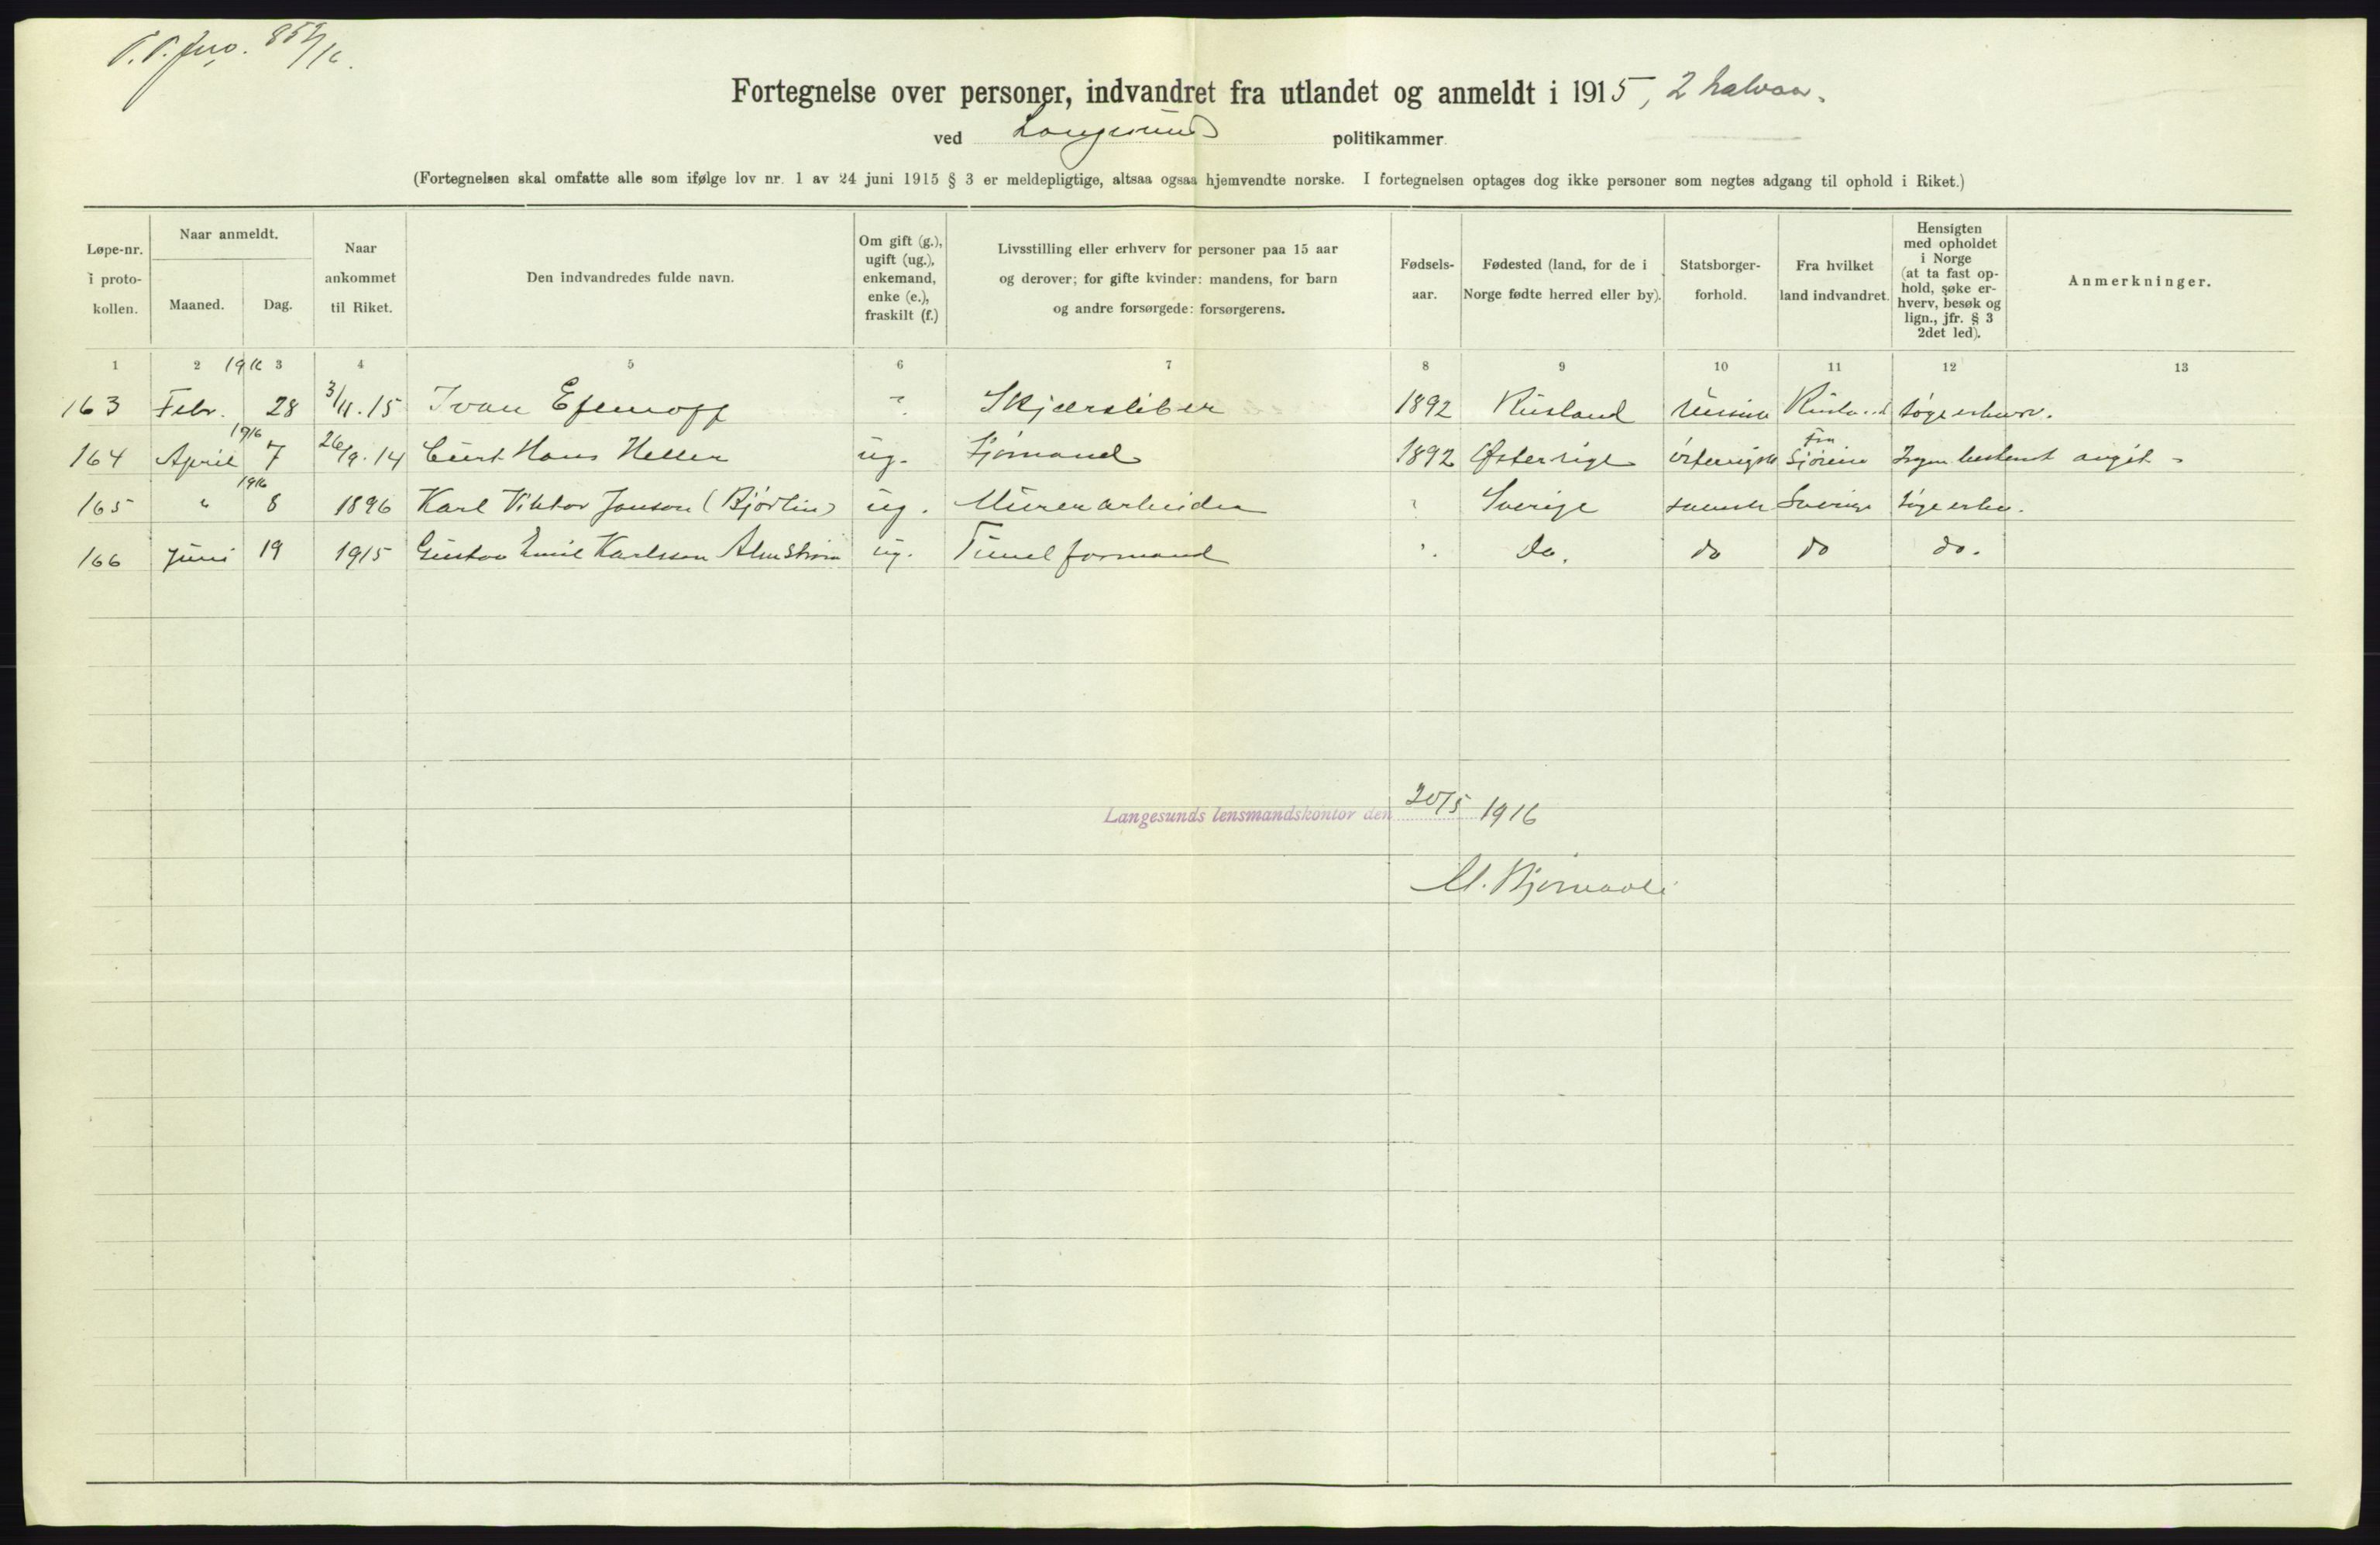 Fortegnelse over personer, indvandret fra utlandet og anmeldt i 1915, 2 halvaar.
ved Langesund politikammer.
(Fortegnelsen skal omfatte alle som ifølge lov nr. 1 av 24 juni 1915 § 3 er meldepligtige, altsaa ogsaa hjemvendte norske. I fortegnelsen optages dog ikke personer som negtes adgang til ophold i Riket.)
Løpe-nr.
i proto-
kollen.
Naar anmeldt.
Maaned.
Dag.
Naar
ankommet
til Riket.
Den indvandredes fulde navn.
Om gift (g.),
ugift (ug.),
enkemand,
enke (e.),
fraskilt (f.)
Livsstilling eller erhverv for personer paa 15 aar
og derover; for gifte kvinder: mandens, for barn
og andre forsørgede: forsørgerens.
Fødsels-
aar.
Fødested (land, for de i
Norge fødte herred eller by).
Statsborger-
forhold.
Fra hvilket
land indvandret.
Hensigten
med opholdet
i Norge
(at ta fast op-
hold, søke er-
hverv, besøk og
lign., jfr. § 3
2det led).
Anmerkninger.
1 2 1916 3 4 5 6 7 8 9 10 11 12 13
163 Febr. 28 3/11.15 Ivan Efemoff ? Skjærsliber 1892 Rusland russisk Rusland søge erhverv.
1916
164 April 7 26/9.14 Curt Hans Heller ug. Sjömand 1892 Østerrige österrigsk Fra Sjöen Ingen bestemt angit -
1916
165 " 8 1896 Karl Viktor Jonson (Björlin) ug. Murerarbeider ? Sverige svensk Sverige søge erhv.
166 Juni 19 1915 Gustav Emil Karlsson Almström ug. Tunelformand ?. Do. do do do.
Langesunds lensmandskontor den 20/5 1916